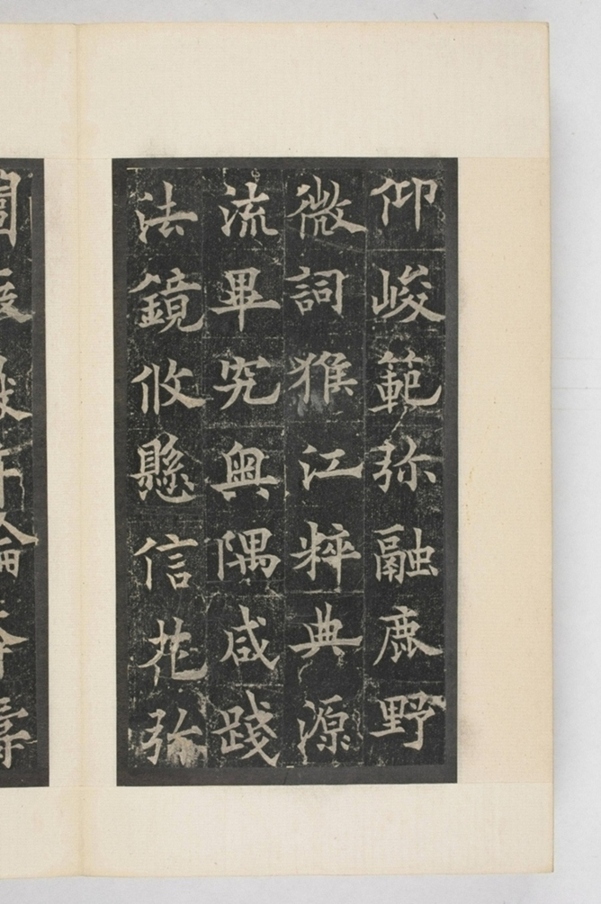 仰峻範弥融鹿野
微詞猴江粹典源
流畢究奥隅咸踐
法鏡攸懸信花弥